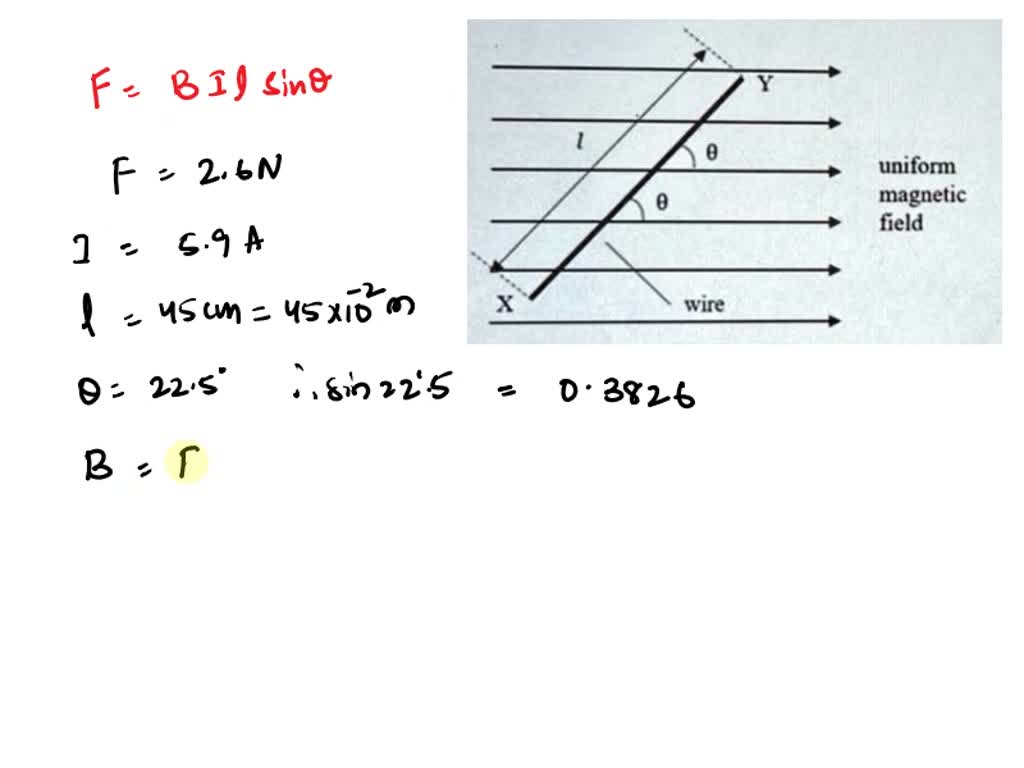 F = B I l sinθ
F = 2.6N
I = 5.9 A
l = 45 cm = 45×10⁻² m
θ = 22.5° ∴ sin 22.5 = 0.3826
B = F
Y
l
θ
θ
uniform
magnetic
field
X
wire